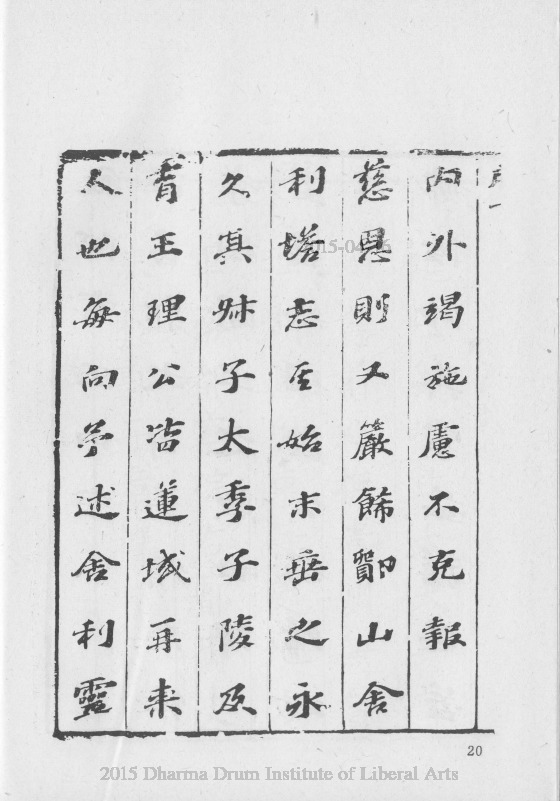 內外竭施慮不克報
慈恩則又嚴餙鄮山舍
利塔志始末垂之永
久其子太季子陵及
育王理公皆蓮城再来
人也每向予述舍利靈
20
2015 Dharma Drum Institute of Liberal Arts